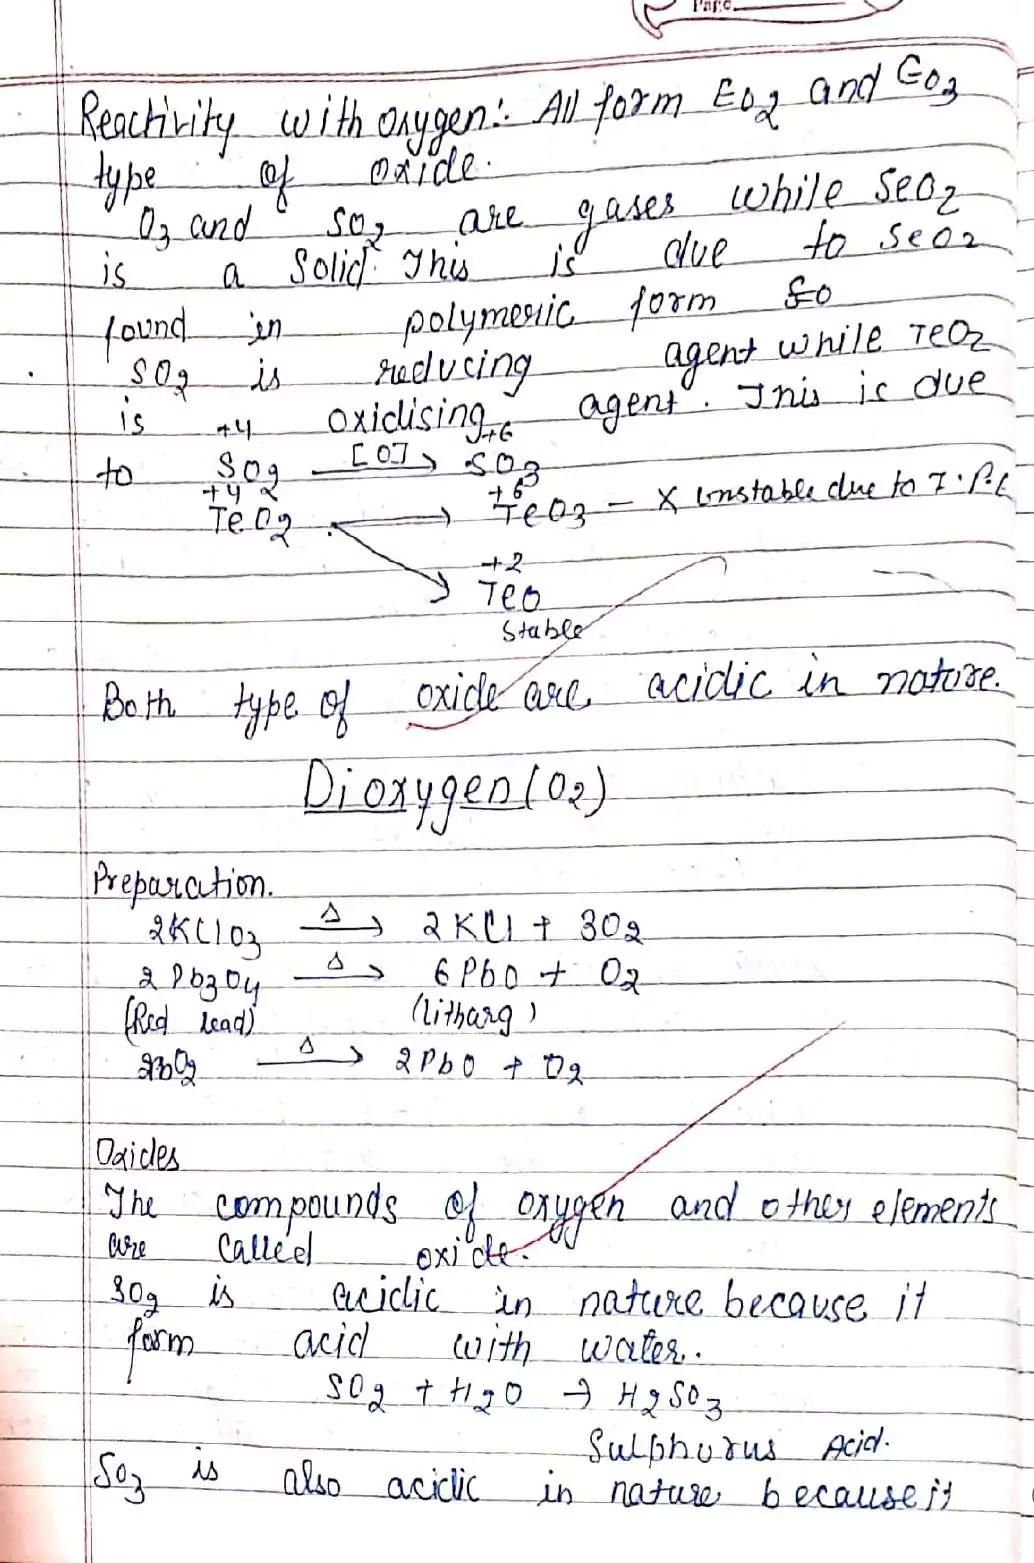 Page
Reactivity with oxygen:- All form EO2 and EO3
type of oxide.
O3 and SO2 are gases while SeO2
is a Solid. This is due to SeO2
found in polymeric form
SO2 is reducing agent while TeO2
is oxidising agent. This is due
+4 +6
to SO2 [O]→ SO3
+4 2 +6
TeO2 → TeO3 - X Unstable due to I.P.E
+2
TeO
Stable
Both type of oxide are acidic in nature.
Dioxygen (O2)
Preparation.
2KClO3 Δ→ 2KCl + 3O2
2Pb3O4 Δ→ 6PbO + O2
(Red lead) (litharg)
Δ→ 2PbO + O2
Oxides
The compounds of oxygen and other elements
are called oxide.
SO2 is acidic in nature because it
form acid with water.
SO2 + H2O → H2SO3
Sulphurus Acid.
SO3 is also acidic in nature because it